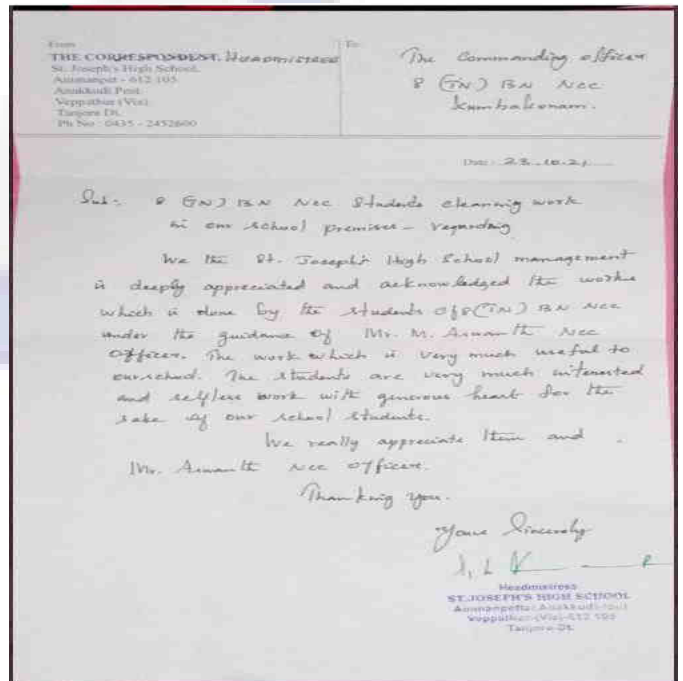 From
THE CORRESPONDENT, Headmistress
St. Joseph's High School,
Ammanpet - 612 105
Anakkudi Post.
Veppathur (Via),
Tanjore Dt.
Ph No : 0435 - 2452600
To
The Commanding officer
8 (TN) BN NCC
Kumbakonam.
Date : 23.10.21
Sub:- 8 (TN) BN NCC Students cleaning work
in our school premises - regarding
We the St. Joseph's High School management
is deeply appreciated and acknowledged the works
which is done by the students of 8(TN) BN NCC
under the guidance of Mr. M. Aswanth NCC
Officer. The work which is very much useful to
our school. The students are very much interested
and selfless work with generous heart for the
sake of our school students.
We really appreciate them and
Mr. Aswanth NCC officer.
Thanking you.
Yours Sincerely
Headmistress
ST.JOSEPH'S HIGH SCHOOL
Ammanpettai, Anakkudi-(po)
Veppathur-(Via)-612 105
Tanjore-Dt.